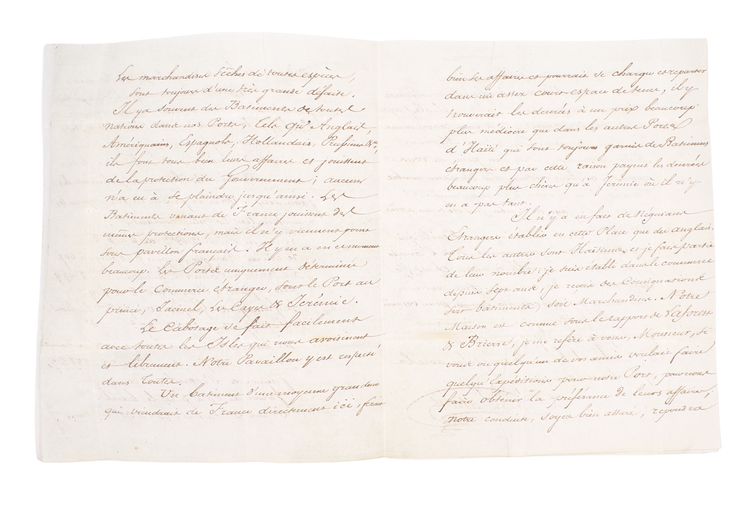 Les marchandises sèches de toutes espèces,
sont toujours d'une très grande défaite.
Il y a souvent des Batiments de toutes
nations dans nos Ports; tels que Anglais,
Amériquains, Espagnols, Hollandais, Prussiens &c.
ils font tous bien leurs affaires et jouissent
de la protection du Gouvernement; aucun
n'a eu à se plaindre jusqu'ici. Les
Batiments venant de France jouissent des
mêmes protections, mais il n'y viennent point
sous pavillon français. Il y en a en ce moment
beaucoup. Les Ports uniquement déterminés
pour le Commerce étranger, sont le Port au
prince, Jacmel, les Cayes & Jérémie.
Le Cabotage se fait facilement
avec toutes les Isles qui nous avoisinent
et librement. Notre Pavaillon y est respecté
dans toutes.
Un Batiment d'une moyenne grandeur
qui viendrait de France directement ici ferait
bien ses affaires et pourrait se charger et repartir
dans un assez court espace de tems, il y
trouverait les denrées à un prix beaucoup
plus médiocre que dans les autres Ports
d'Haïti qui sont toujours garnis de Batiments
étrangers et par cette raison payent les denrées
beaucoup plus chère qu'à Jérémie où il n'y
en a pas tant.
Il n'y a en fait de Négociants
Etrangers établis en cette Place que des anglais.
Tous les autres sont Haïtiens et je fais partie
de leur nombre; je suis établi dans le commerce
depuis sept ans, je reçois des Consignations
soit Batiments, soit Marchandises. Notre
Maison est connue sous le rapport de Laforest
& Brierre, je me refère à vous, Monsieur, si
vous ou quelqu'un de vos amis voulait faire
quelque Expéditions pour notre Port, pour nous
faire obtenir la préférence de leurs affaires,
notre conduite, soyez bien assuré, repondra